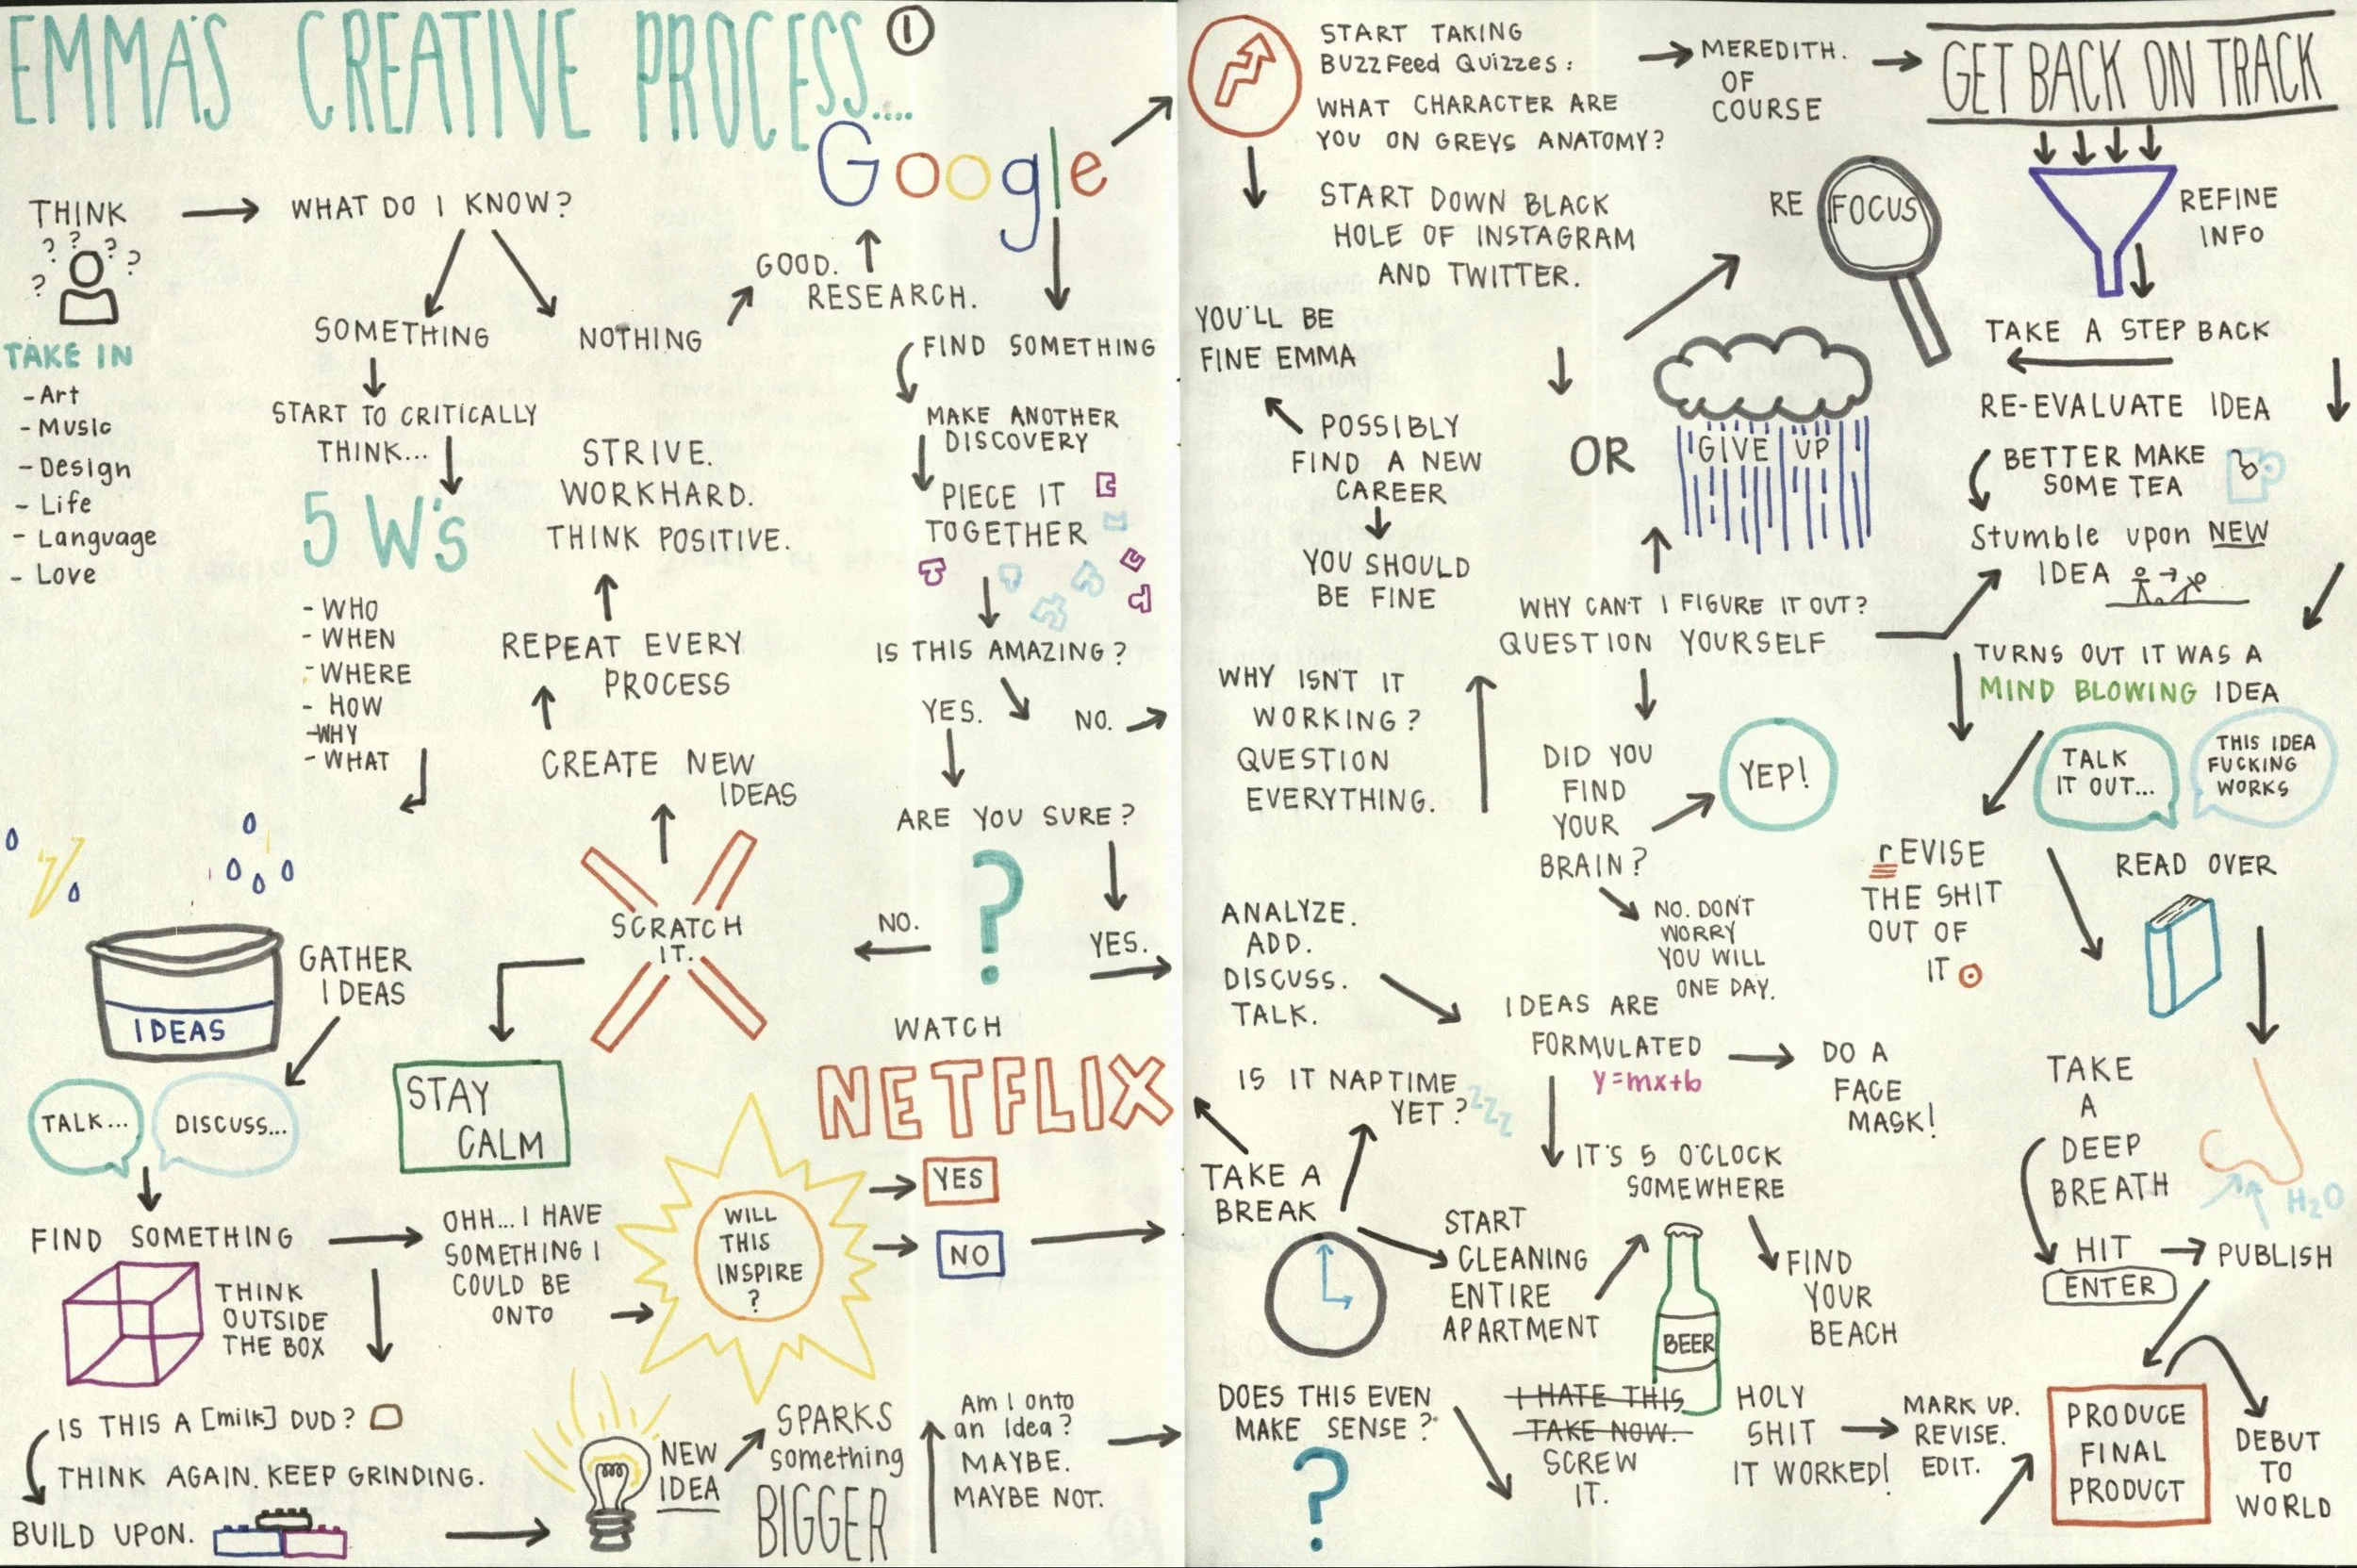 EMMA'S CREATIVE PROCESS....
1
THINK
WHAT DO I KNOW?
? ? ? ? ?
TAKE IN
- Art
- Music
- Design
- Life
- Language
- Love
SOMETHING
NOTHING
START TO CRITICALLY
THINK...
5 W's
- WHO
- WHEN
- WHERE
- HOW
- WHY
- WHAT
GOOD.
RESEARCH.
Google
STRIVE.
WORKHARD.
THINK POSITIVE.
REPEAT EVERY
PROCESS
CREATE NEW
IDEAS
SCRATCH
IT.
FIND SOMETHING
MAKE ANOTHER
DISCOVERY
PIECE IT
TOGETHER
IS THIS AMAZING?
YES.
NO.
ARE YOU SURE?
?
NO.
YES.
GATHER
IDEAS
IDEAS
TALK...
DISCUSS...
STAY
CALM
WATCH
NETFLIX
FIND SOMETHING
THINK
OUTSIDE
THE BOX
OHH... I HAVE
SOMETHING I
COULD BE
ONTO
WILL
THIS
INSPIRE
?
YES
NO
IS THIS A [milk] DUD?
THINK AGAIN. KEEP GRINDING.
BUILD UPON.
NEW
IDEA
SPARKS
something
BIGGER
Am I onto
an Idea?
MAYBE.
MAYBE NOT.
START TAKING
BuzzFeed Quizzes:
WHAT CHARACTER ARE
YOU ON GREYS ANATOMY?
MEREDITH.
OF
COURSE
GET BACK ON TRACK
START DOWN BLACK
HOLE OF INSTAGRAM
AND TWITTER.
RE
FOCUS
REFINE
INFO
YOU'LL BE
FINE EMMA
POSSIBLY
FIND A NEW
CAREER
YOU SHOULD
BE FINE
OR
GIVE UP
TAKE A STEP BACK
RE-EVALUATE IDEA
BETTER MAKE
SOME TEA
Stumble upon NEW
IDEA
WHY CAN'T I FIGURE IT OUT?
QUESTION YOURSELF
TURNS OUT IT WAS A
MIND BLOWING IDEA
WHY ISN'T IT
WORKING?
QUESTION
EVERYTHING.
DID YOU
FIND
YOUR
BRAIN?
YEP!
NO. DON'T
WORRY
YOU WILL
ONE DAY.
TALK
IT OUT...
THIS IDEA
FUCKING
WORKS
rEVISE
THE SHIT
OUT OF
IT
READ OVER
ANALYZE.
ADD.
DISCUSS.
TALK.
IDEAS ARE
FORMULATED
y=mx+b
DO A
FACE
MASK!
IS IT NAPTIME
YET?
ZZZ
TAKE A
BREAK
IT'S 5 O'CLOCK
SOMEWHERE
START
CLEANING
ENTIRE
APARTMENT
BEER
FIND
YOUR
BEACH
TAKE
A
DEEP
BREATH
H2O
HIT
ENTER
PUBLISH
DOES THIS EVEN
MAKE SENSE?
?
I HATE THIS
TAKE NOW.
SCREW
IT.
HOLY
SHIT
IT WORKED!
MARK UP.
REVISE.
EDIT.
PRODUCE
FINAL
PRODUCT
DEBUT
TO
WORLD